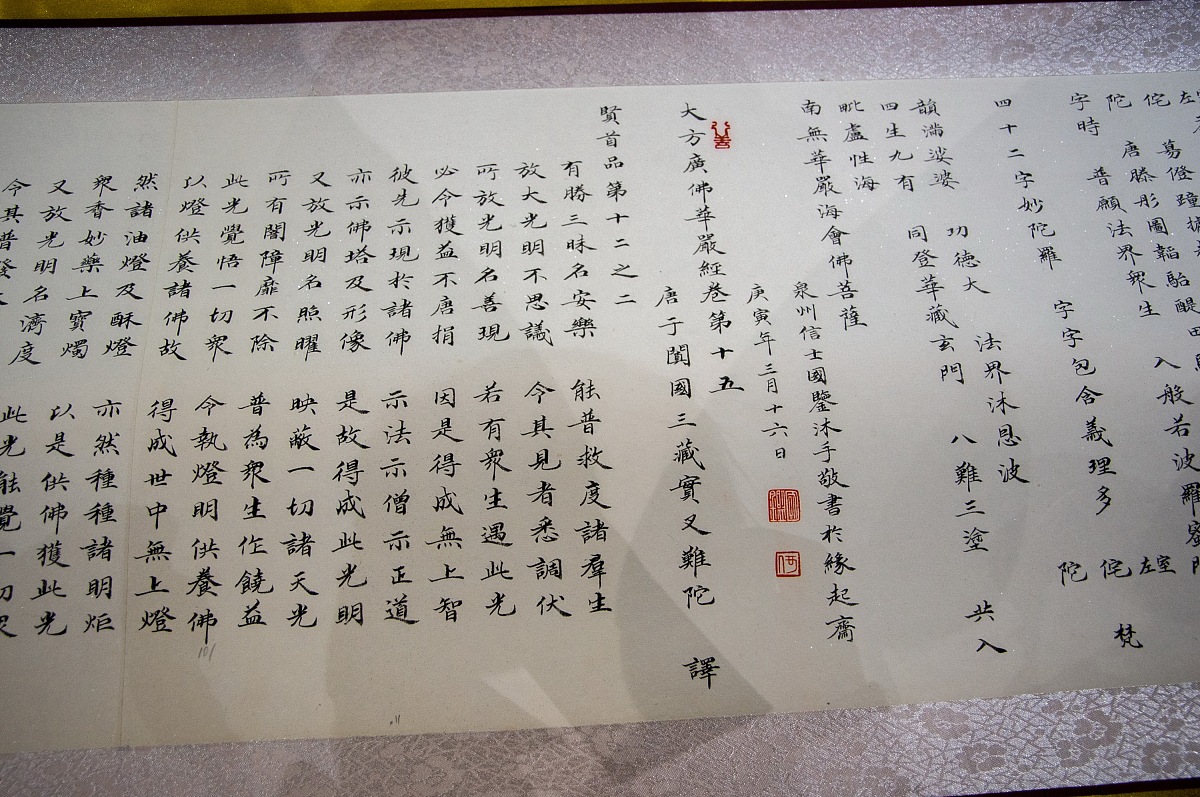 字時 普願法界眾生 入般若波羅蜜門
四十二字妙陀羅 字字包含義理多
韻滿娑婆 功德大 法界沐恩波
四生九有 同登華藏玄門 八難三塗 共入
毗盧性海
南無華嚴海會佛菩薩
泉州信士國鑒沐手敬書於緣起齋
庚寅年三月十六日
大方廣佛華嚴經卷第十五
唐于闐國三藏實叉難陀 譯
賢首品第十二之二
有勝三昧名安樂 能普救度諸羣生
放大光明不思議 令其見者悉調伏
所放光明名善現 若有眾生遇此光
必令獲益不唐捐 因是得成無上智
彼先示現於諸佛 示法示僧示正道
亦示佛塔及形像 是故得成此光明
又放光明名照曜 映蔽一切諸天光
所有闇障靡不除 普為眾生作饒益
此光覺悟一切眾 令執燈明供養佛
以燈供養諸佛故 得成世中無上燈
然諸油燈及酥燈 亦然種種諸明炬
眾香妙藥上寶燭 以是供佛獲此光
又放光明名濟度 此光能覺一切眾
令其普發